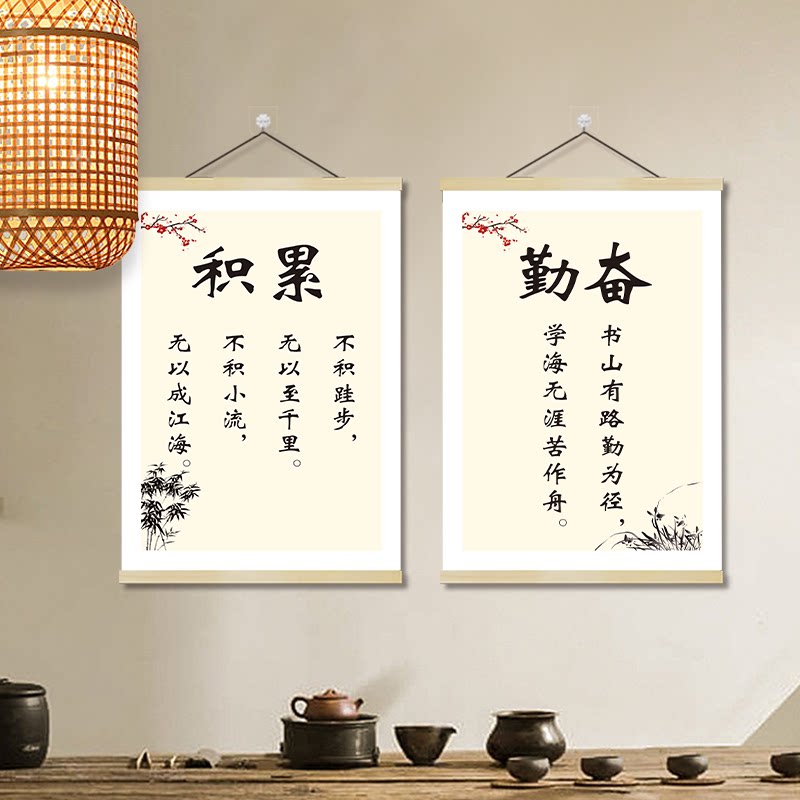 积累
不积跬步，
无以至千里。
不积小流，
无以成江海。
勤奋
书山有路勤为径，
学海无涯苦作舟。